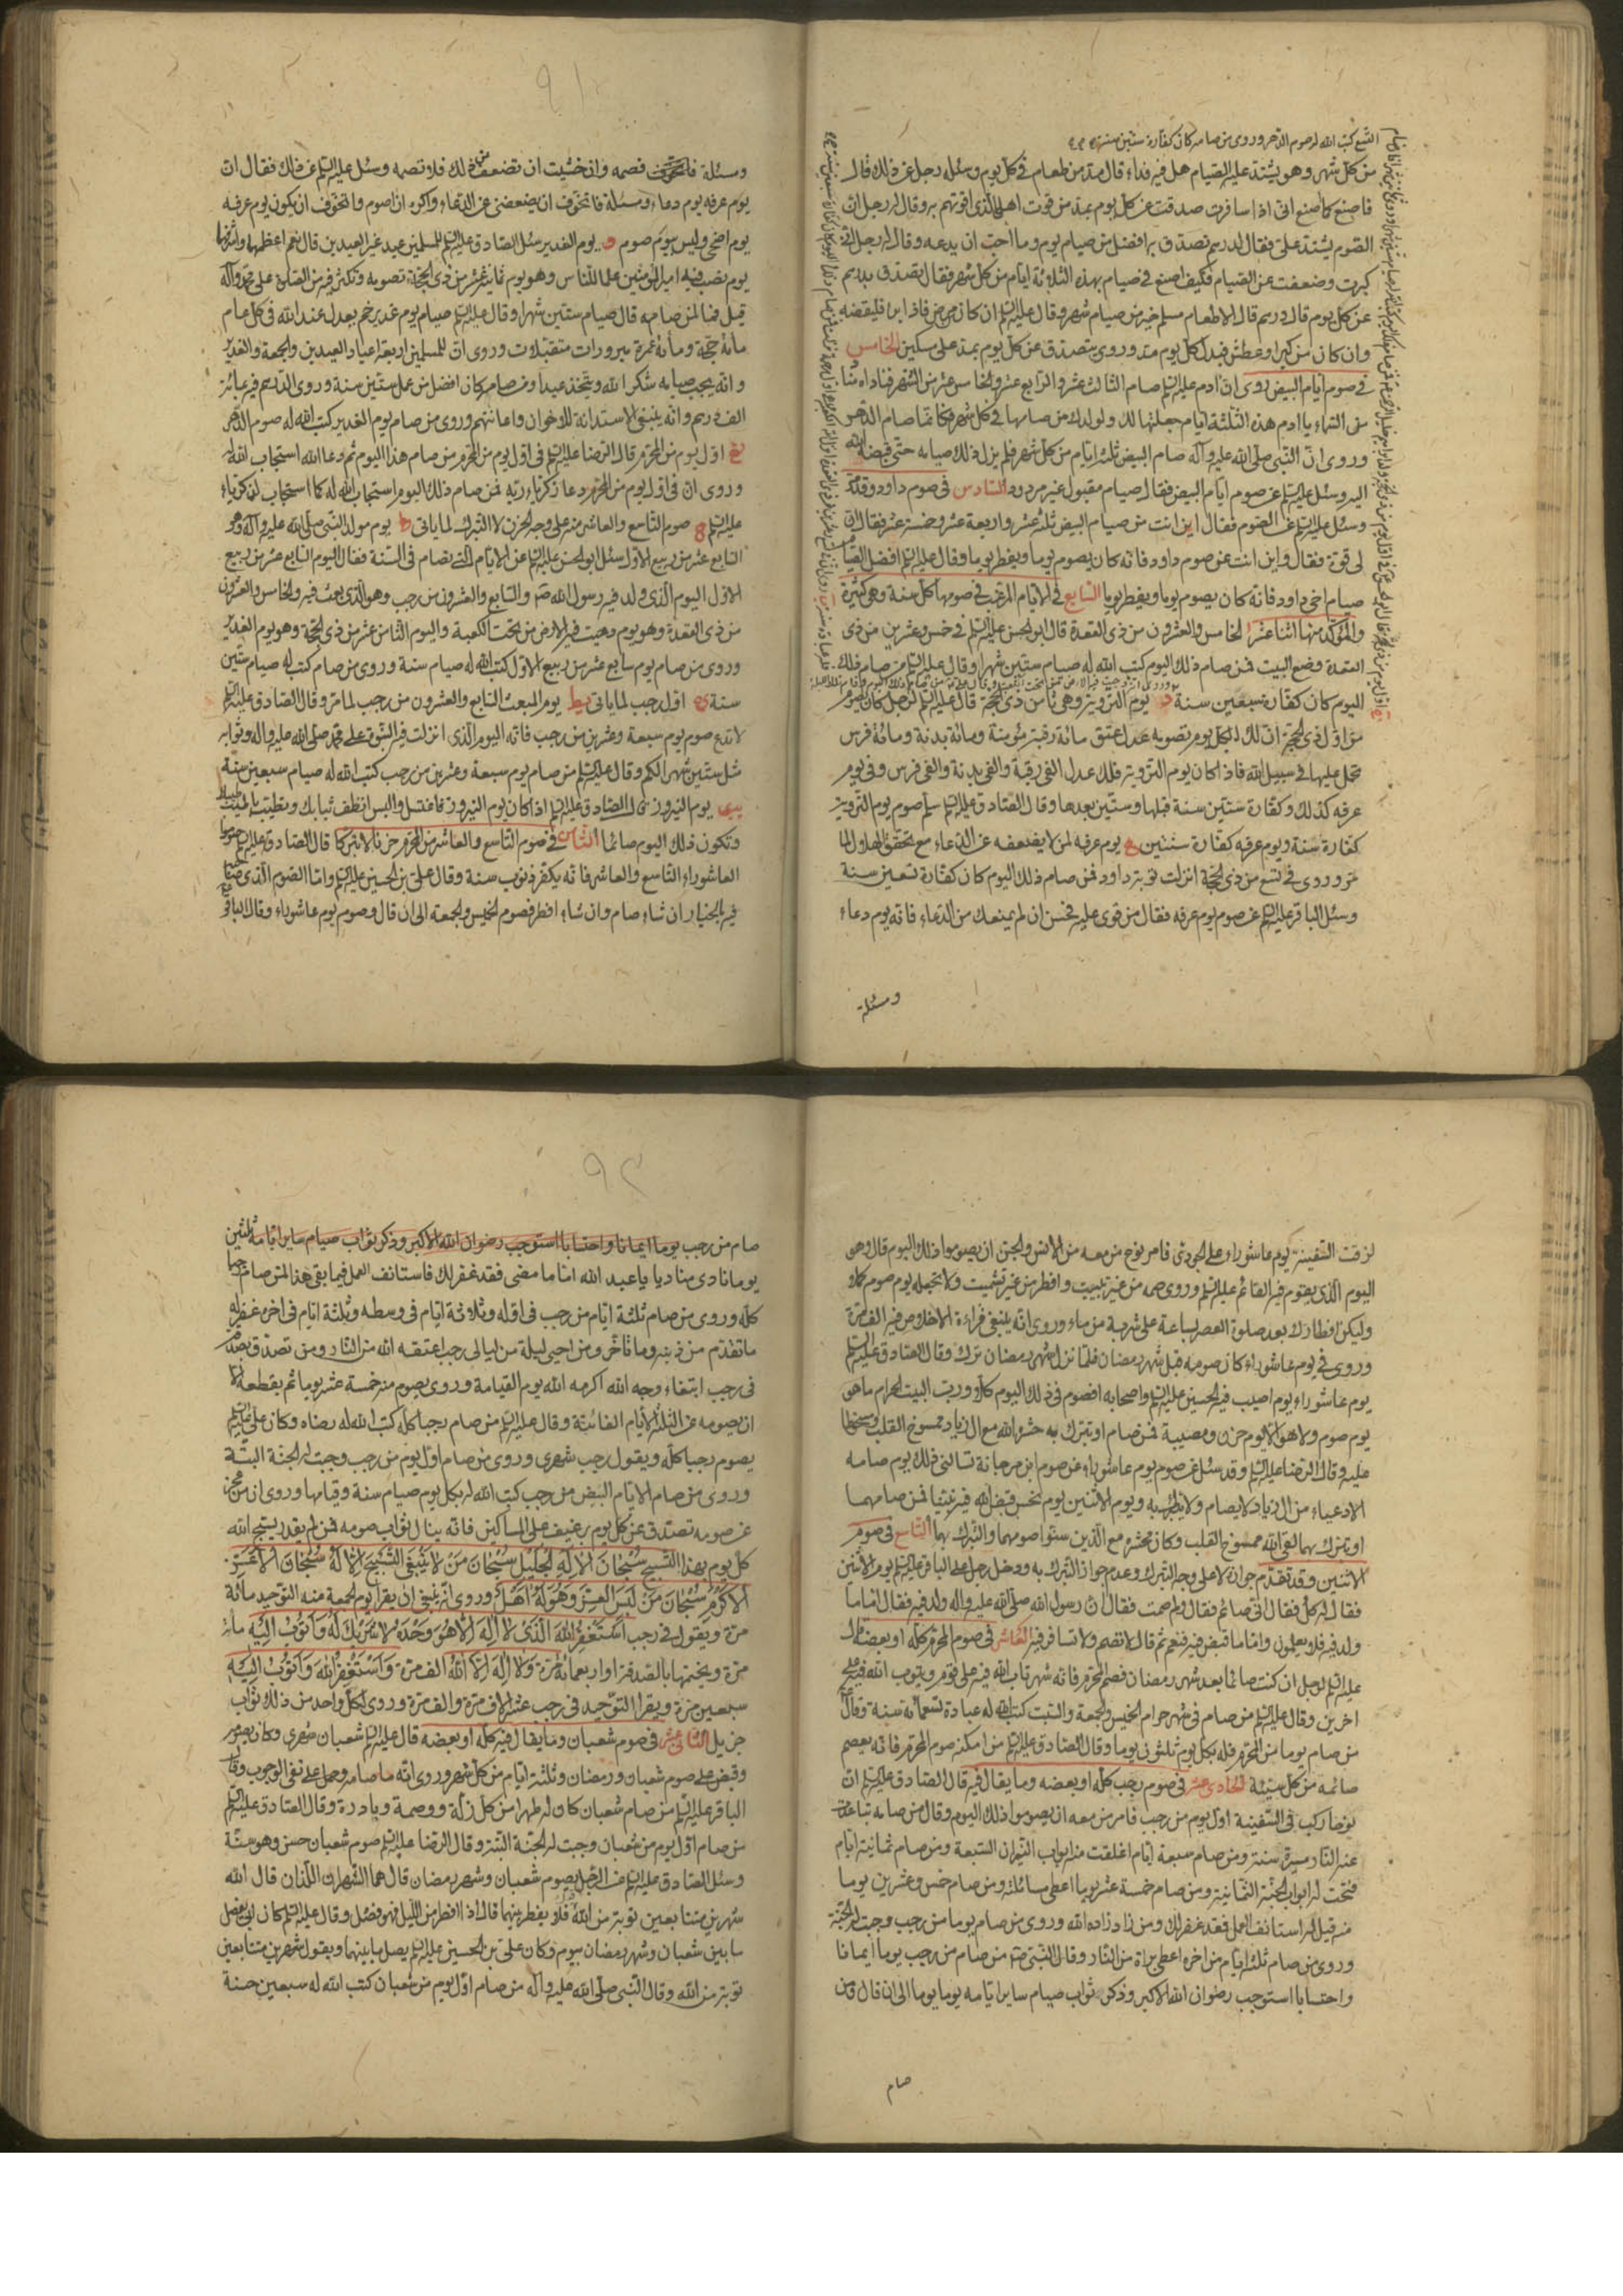 التسع كتب الله له صوم الدهر وروى من صامه كان كفارة ستين سنة
من كل شهر وهو يشتد عليه الصيام هل فيه فداء قال مد من طعام في كل يوم وسئله رجل عن ذلك فقال
فاصنع كما اصنع اني اذا سافرت صدقت عن كل يوم بمد من قوت اهلي الذي اقوتهم به وقال له رجل ان
الصوم يشتد علي فقال لدرهم تصدق به افضل من صيام يوم وما احب ان يدعه وقال له رجل اني
كبرت وضعفت عن الصيام فكيف اصنع في صيام بهذه الثلاثة ايام من كل شهر فقال تصدق بدرهم
عن كل يوم قال درهم قال لاطعام مسلم خير من صيام شهر وقال عليه السلم ان كان من مرض فاذا برا فليقضه
وان كان من كبر او عطش فبدل كل يوم مد وروى يتصدق عن كل يوم بمد على مسكين الخامس
في صوم ايام البيض روى ان ادم عليه السلم صام الثالث عشر والرابع عشر والخامس عشر من الشهر فناداه مناد
من السماء يا ادم هذه الثلثة ايام جعلتها لك ولولدك من صامها في كل شهر فكانما صام الدهر
وروى ان النبي صلى الله عليه وآله صام البيض ثلثة ايام من كل شهر فلم يزل ذلك صيامه حتى قبضه الله
اليه وسئل عليه السلم عن صوم ايام البيض فقال صيام مقبول غير مردود السادس في صوم داود وقد
وسئل عليه السلم عن الصوم فقال اين انت من صيام البيض ثلثة عشر واربعة عشر وخمسة عشر فقال ان
لي قوة فقال واين انت عن صوم داود فانه كان يصوم يوما ويفطر يوما وقال عليه السلم افضل الصيام
صيام اخي داود فانه كان يصوم يوما ويفطر يوما السابع في الايام المرغب في صومها كل سنة وهي كثيرة
والمؤكد منها اثنا عشر ا الخامس والعشرون من ذي القعدة قال ابو الحسن عليه السلم في خمس وعشرين من ذي
القعدة وضع البيت فمن صام ذلك اليوم كتب الله له صيام ستين شهرا وقال عليه السلم من صام ذلك
اليوم كان كفارة سبعين سنة د يوم التروية وهي ثامن ذي الحجة قال عليه السلم لرجل كان يصوم
من اول ذي الحجة ان لك بكل يوم تصومه عدل عتق مائة رقبة مؤمنة ومائة بدنة ومائة فرس
تحمل عليها في سبيل الله فاذا كان يوم التروية فلك عدل الفي رقبة والفي بدنة والفي فرس وفي يوم
عرفه كذلك وكفارة ستين سنة قبلها وستين بعدها وقال الصادق عليه السلم صوم يوم التروية
كفارة سنة ويوم عرفه كفارة سنتين ه يوم عرفه لمن لا يضعفه عن الدعاء مع تحقق الهلال لما
مر وروى في تسع من ذي الحجة انزلت توبة داود فمن صام ذلك اليوم كان كفارة تسعين سنة
وسئل الباقر عليه السلم عن صوم يوم عرفه فقال من قوى عليه فحسن ان لم يمنعك من الدعاء فانه يوم دعاء
ومسئلة
٩١
ومسئلة فصمه وان خشيت ان تضعف من ذلك فلا تصمه وسئل عليه السلم عن ذلك فقال ان
يوم عرفه يوم دعاء ومسئلة فاتخوف ان يضعفني عن الدعاء واكره ان اصوم واتخوف ان يكون يوم عرفه
يوم اضحى وليس بيوم صوم و يوم الغدير سئل الصادق عليه السلم للمسلمين عيد غير العيدين قال نعم اعظمها واشرفها
يوم نصب فيه امير المؤمنين علما للناس وهو يوم ثمانية عشر من ذي الحجة تصومه وتكثر فيه من الصلوة على محمد وآله
قيل فما لمن صامه قال صيام ستين شهرا وقال عليه السلم صيام يوم غدير خم يعدل عند الله في كل عام
مائة حجة ومائة عمرة مبرورات متقبلات وروى ان للمسلمين اربعة اعياد العيدين والجمعة والغدير
وانه يجب صيامه شكرا لله ويتخذ عيدا ومن صام كان افضل من عمل ستين سنة وروى الدرهم فيه بمائة
الف درهم وانه ينبغي الاستدانة للاخوان واعانتهم وروى من صام يوم الغدير كتب الله له صوم الدهر
اول يوم من المحرم قال الرضا عليه السلم في اول يوم من المحرم من صام هذا اليوم ثم دعا الله استجاب الله له
وروى ان في اول يوم من المحرم دعا زكرياء ربه فمن صام ذلك اليوم استجاب الله له كما استجاب لزكرياء
عليه السلم ح صوم التاسع والعاشر منه على وجه الحزن لا التبرك لما ياتي ط يوم مولد النبي صلى الله عليه وآله وهو
السابع عشر من ربيع الاول سئل ابو الحسن عليه السلم عن الايام التي تصام في السنة فقال اليوم السابع عشر من ربيع
الاول اليوم الذي ولد فيه رسول الله ص والسابع والعشرون من رجب وهو الذي بعث فيه والخامس والعشرون
من ذي القعدة وهو يوم دحيت فيه الارض من تحت الكعبة واليوم الثامن عشر من ذي الحجة وهو يوم الغدير
وروى من صام يوم سابع عشر من ربيع الاول كتب الله له صيام سنة وروى من صام كتب له صيام ستين
سنة ي اول رجب لما ياتي يا يوم المبعث السابع والعشرون من رجب لما مر وقال الصادق عليه السلم
لا تدع صوم يوم سبعة وعشرين من رجب فانه اليوم الذي انزلت فيه النبوة على محمد صلى الله عليه واله وثوابه
مثل ستين شهرا لكم وقال عليه السلم من صام يوم سبعة وعشرين من رجب كتب الله له صيام سبعين سنة
يب يوم النيروز قال الصادق عليه السلم اذا كان يوم النيروز فاغتسل والبس انظف ثيابك وتطيب باطيب طيبك
وتكون ذلك اليوم صائما الثامن في صوم التاسع والعاشر من المحرم حزنا لا تبركا قال الصادق عليه السلم صوموا
العاشوراء التاسع والعاشر فانه يكفر ذنوب سنة وقال علي بن الحسين عليه السلم واما الصوم الذي صاحبه
فيه بالخيار ان شاء صام وان شاء افطر فصوم الخميس والجمعة الى ان قال وصوم يوم عاشوراء وقال الباقر
لزقت السفينة يوم عاشوراء على الجودي فامر نوح من معه من الانس والجن ان يصوموا ذلك اليوم قال وهو
اليوم الذي يقوم فيه القائم عليه السلم وروى صمه من غير تبييت وافطر من غير تشميت ولا تجعله يوم صوم كملا
وليكن افطارك بعد صلوة العصر بساعة على شربة من ماء وروى انه ينبغي قراءة الاخلاص فيه الف مرة
وروى في يوم عاشوراء كان صومه قبل شهر رمضان فلما نزل شهر رمضان ترك وقال الصادق عليه السلم
يوم عاشوراء يوم اصيب فيه الحسين عليه السلم واصحابه افصوم في ذلك اليوم كلا ورب البيت الحرام ما هو
يوم صوم ولا هو الا يوم حزن ومصيبة فمن صام او تبرك به حشره الله مع ال زياد ممسوخ القلب مسخوطا
عليه وقال الرضا عليه السلم وقد سئل عن صوم يوم عاشوراء عن صوم ابن مرجانة تسالني ذلك يوم صامه
الادعياء من ال زياد لا يصام ولا يتبرك به ويوم الاثنين يوم نحس قبض الله فيه نبيه فمن صامهما
او تبرك بهما لقى الله ممسوخ القلب وكان محشره مع الذين سنوا صومهما والتبرك بهما التاسع في صوم
الاثنين وقد تقدم جوازه لا على وجه التبرك وعدم جواز التبرك به ودخل رجل على الباقر عليه السلم يوم الاثنين
فقال له كل فقال اني صائم فقال ولم صمت فقال ان رسول الله صلى الله عليه واله ولد فيه فقال اما ما
ولد فيه فلا يعلمون واما ما قبض فيه فنعم ثم قال لا تصم ولا تسافر فيه العاشر في صوم المحرم كله او بعضه قال
عليه السلم لرجل ان كنت صائما بعد شهر رمضان فصم المحرم فانه شهر تاب الله فيه على قوم ويتوب الله فيه على
اخرين وقال عليه السلم من صام في شهر حرام الخميس والجمعة والسبت كتب الله له عبادة تسعمائة سنة وقال
من صام يوما من المحرم فله بكل يوم ثلثون يوما وقال الصادق عليه السلم من امكنه صوم المحرم فانه يعصم
صائمه من كل سيئة الحادي عشر في صوم رجب كله او بعضه وما يقال فيه قال الصادق عليه السلم ان
نوحا ركب في السفينة اول يوم من رجب فامر من معه ان يصوموا ذلك اليوم وقال من صامه تباعدت
عنه النار مسيرة سنة ومن صام سبعة ايام اغلقت عنه ابواب النيران السبعة ومن صام ثمانية ايام
فتحت له ابواب الجنة الثمانية ومن صام خمسة عشر يوما اعطى مسائلته ومن صام خمس وعشرين يوما
منه قيل له استانف العمل فقد غفر لك ومن زاد زاده الله وروى من صام يوما من رجب وجبت له الجنة
وروى من صام ثلثة ايام من اخره اعطى براة من النار وقال النبي ص من صام من رجب يوما ايمانا
واحتسابا استوجب رضوان الله الاكبر وذكر ثواب صيام ساير ايامه يوما يوما الى ان قال ومن
صام
٩٢
صام من رجب يوما ايمانا واحتسابا استوجب رضوان الله الاكبر وذكر ثواب صيام ساير ايامه ثلثين
يوما نادى مناد يا عبد الله اما ما مضى فقد غفر لك فاستانف العمل فيما بقى هذا لمن صام رجبا
كله وروى من صام ثلثة ايام من رجب في اوله وثلاثة ايام في وسطه وثلثة ايام في اخره غفر له
ما تقدم من ذنبه وما تاخر ومن احيى ليلة من ليالي رجب اعتقه الله من النار ومن تصدق بصدقة
في رجب ابتغاء وجه الله اكرمه الله يوم القيامة وروى يصوم منه خمسة عشر يوما ثم يقطعه الا
ان يصومه عن الثلثة الايام الفائتة وقال عليه السلم من صام رجبا كله كتب الله له رضاه وكان علي عليه السلم
يصوم رجبا كله ويقول رجب شهري وروى من صام اول يوم من رجب وجبت له الجنة البتة
وروى من صام الايام البيض من رجب كتب الله له بكل يوم صيام سنة وقيامها وروى ان من عجز
عن صومه تصدق عن كل يوم برغيف على المساكين فانه ينال ثواب صومه فمن لم يقدر يسبح الله
كل يوم بهذا التسبيح سبحان الاله الجليل سبحان من لا ينبغي التسبيح الا له سبحان الاعز
الاكرم سبحان من لبس العز وهو له اهل وروى انه ينبغي ان يقرا يوم الجمعة منه التوحيد مائة
مرة ويقول في رجب استغفر الله الذي لا اله الا هو وحده لا شريك له واتوب اليه مائة
مرة ويختمها بالصدقة او اربعمائة مرة ولا اله الا الله الف مرة واستغفر الله واتوب اليه
سبعين مرة ويقرا التوحيد في رجب عشرة الاف مرة والف مرة وروى لكل واحد من ذلك ثواب
جزيل الثاني عشر في صوم شعبان وما يقال فيه كله او بعضه قال عليه السلم شعبان شهري وكان يصوم
وقبض على صوم شعبان ورمضان وثلثة ايام من كل شهر وروى انه ما صامه وحمل على نفى الوجوب وقال
الباقر عليه السلم من صام شعبان كان له طهرا من كل زلة ووصمة وبادرة وقال الصادق عليه السلم
من صام اول يوم من شعبان وجبت له الجنة البتة وقال الرضا عليه السلم صوم شعبان حسن وهو سنة
وسئل الصادق عليه السلم عن الرجل يصوم شعبان وشهر رمضان قال هما الشهران اللذان قال الله
شهرين متتابعين توبة من الله قلت فلا يفطر بينهما قال اذا افطر من الليل فهو فصل وقال عليه السلم كان ابي يفصل
ما بين شعبان وشهر رمضان بيوم وكان علي بن الحسين عليه السلم يصل ما بينهما ويقول شهرين متتابعين
توبة من الله وقال النبي صلى الله عليه وآله من صام اول يوم من شعبان كتب الله له سبعين حسنة